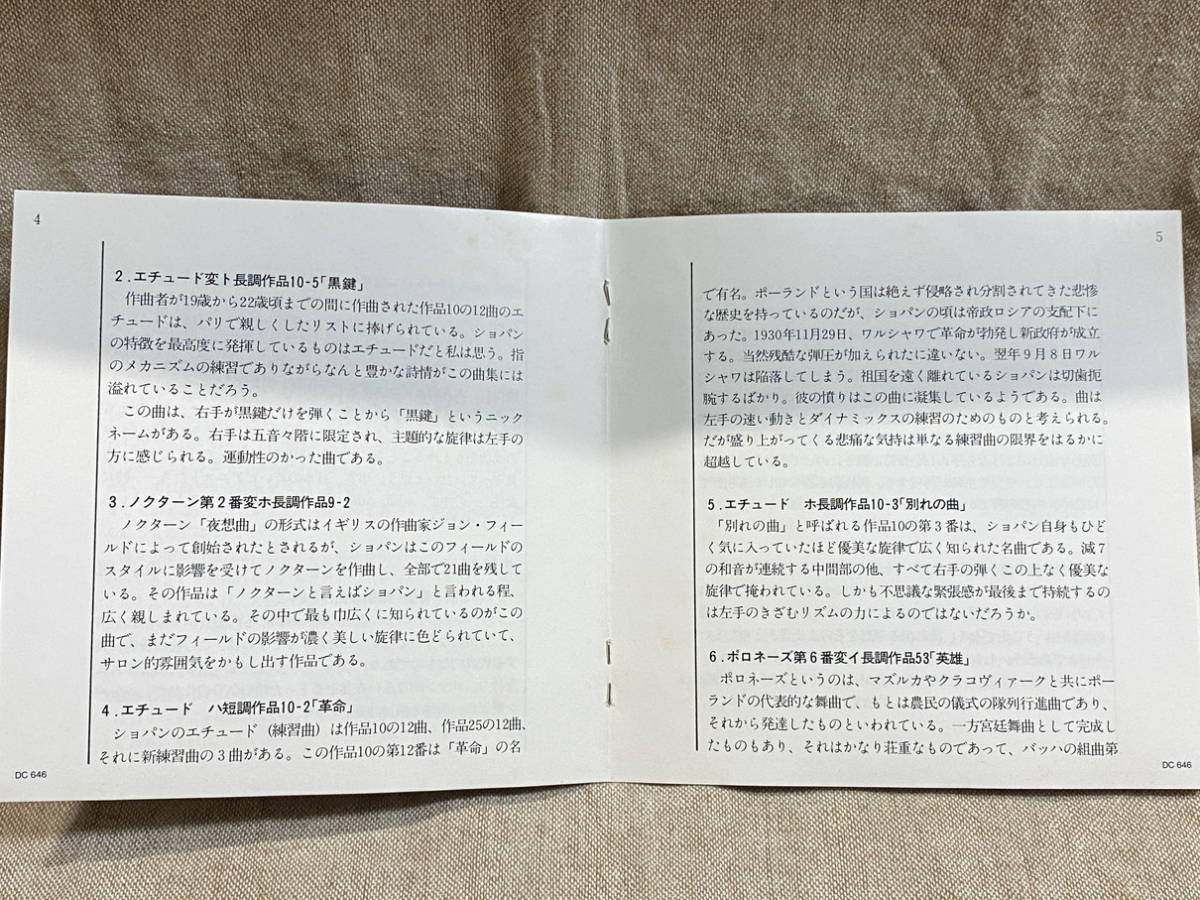 4
2.エチュード変ト長調作品10-5「黒鍵」
作曲者が19歳から22歳頃までの間に作曲された作品10の12曲のエ
チュードは、パリで親しくしたリストに捧げられている。ショパン
の特徴を最高度に発揮しているものはエチュードだと私は思う。指
のメカニズムの練習でありながらなんと豊かな詩情がこの曲集には
溢れていることだろう。
この曲は、右手が黒鍵だけを弾くことから「黒鍵」というニック
ネームがある。右手は五音々階に限定され、主題的な旋律は左手の
方に感じられる。運動性のかった曲である。
3.ノクターン第2番変ホ長調作品9-2
ノクターン「夜想曲」の形式はイギリスの作曲家ジョン・フィー
ルドによって創始されたとされるが、ショパンはこのフィールドの
スタイルに影響を受けてノクターンを作曲し、全部で21曲を残して
いる。その作品は「ノクターンと言えばショパン」と言われる程、
広く親しまれている。その中で最も巾広くに知られているのがこの
曲で、まだフィールドの影響が濃く美しい旋律に色どられていて、
サロン的雰囲気をかもし出す作品である。
4.エチュード ハ短調作品10-2「革命」
ショパンのエチュード(練習曲)は作品10の12曲、作品25の12曲、
それに新練習曲の3曲がある。この作品10の第12番は「革命」の名
DC 646
5
で有名。ポーランドという国は絶えず侵略され分割されてきた悲惨
な歴史を持っているのだが、ショパンの頃は帝政ロシアの支配下に
あった。1930年11月29日、ワルシャワで革命が勃発し新政府が成立
する。当然残酷な弾圧が加えられたに違いない。翌年9月8日ワル
シャワは陥落してしまう。祖国を遠く離れているショパンは切歯扼
腕するばかり。彼の憤りはこの曲に凝集しているようである。曲は
左手の速い動きとダイナミックスの練習のためのものと考えられる。
だが盛り上がってくる悲痛な気持は単なる練習曲の限界をはるかに
超越している。
5.エチュード ホ長調作品10-3「別れの曲」
「別れの曲」と呼ばれる作品10の第3番は、ショパン自身もひど
く気に入っていたほど優美な旋律で広く知られた名曲である。減7
の和音が連続する中間部の他、すべて右手の弾くこの上なく優美な
旋律で掩われている。しかも不思議な緊張感が最後まで持続するの
は左手のきざむリズムの力によるのではないだろうか。
6.ポロネーズ第6番変イ長調作品53「英雄」
ポロネーズというのは、マズルカやクラコヴィアークと共にポー
ランドの代表的な舞曲で、もとは農民の儀式の隊列行進曲であり、
それから発達したものといわれている。一方宮廷舞曲として完成し
たものもあり、それはかなり荘重なものであって、バッハの組曲第
DC 646